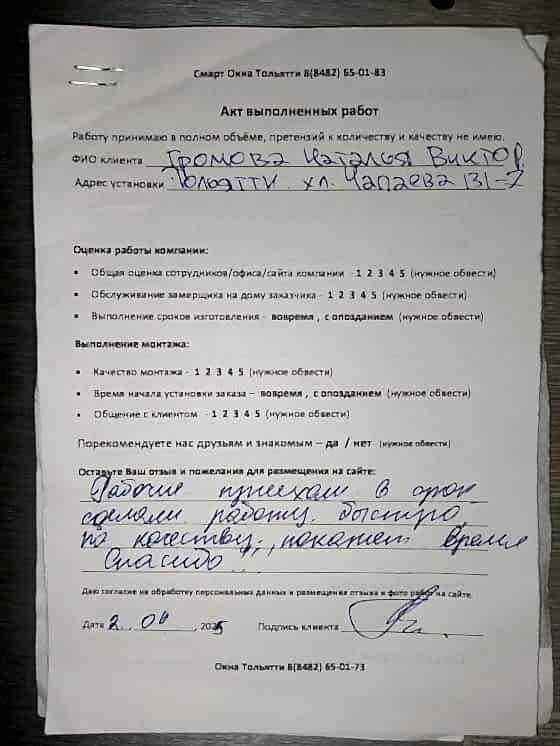 Смарт Окна Тольятти 8(8482) 65-01-83
Акт выполненных работ
Работу принимаю в полном объёме, претензий к количеству и качеству не имею.
ФИО клиента Громова Наталья Виктор
Адрес установки Тольятти ул. Чапаева 131-7
Оценка работы компании:
• Общая оценка сотрудников/офиса/сайта компании - 1 2 3 4 5 (нужное обвести)
• Обслуживание замерщика на дому заказчика - 1 2 3 4 5 (нужное обвести)
• Выполнение сроков изготовления - вовремя , с опозданием (нужное обвести)
Выполнение монтажа:
• Качество монтажа - 1 2 3 4 5 (нужное обвести)
• Время начала установки заказа – вовремя , с опозданием (нужное обвести)
• Общение с клиентом - 1 2 3 4 5 (нужное обвести)
Порекомендуете нас друзьям и знакомым – да / нет (нужное обвести)
Оставьте Ваш отзыв и пожелания для размещения на сайте:
Рабочие приехали в срок
сделали работу быстро,
по качеству, покажет время
Спасибо!
Даю согласие на обработку персональных данных и размещения отзыва и фото работ на сайте.
Дата 2. 04 , 2025 Подпись клиента
Окна Тольятти 8(8482) 65-01-73